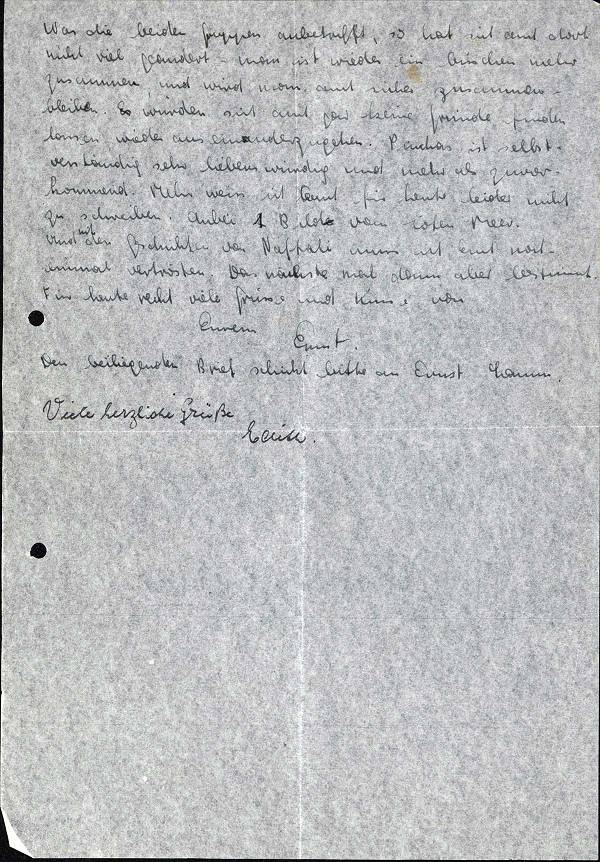 Was die beiden Gruppen anbetrifft, so hat sich auch dort
nicht viel geändert - man ist wieder ein bisschen mehr
zusammen, und wird nun auch sicher zusammen-
bleiben. Es wurden sich auch gar keine Gründe finden
lassen wieder auseinanderzugehen. Pinchas ist selbst-
verständig sehr liebenswürdig und mehr als zuvor-
kommend. Mehr weiss ich Euch für heute leider nicht
zu schreiben. Anbei 1 Bild vom roten Meer.
Und mit den Geschichten von Naftali muss ich Euch noch-
einmal vertrösten. Das nächste mal dann aber bestimmt.
Für heute recht viele Grüsse und Küsse von
Eurem
Ernst.
Den beiliegenden Brief schickt bitte an Ernst
Viele herzliche Grüße
Edith.